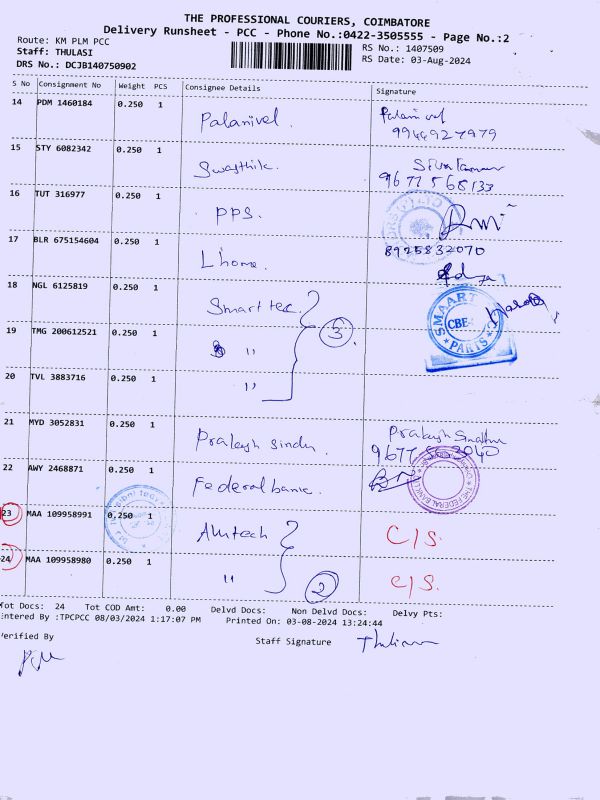 THE PROFESSIONAL COURIERS, COIMBATORE
Delivery Runsheet - PCC - Phone No.:0422-3505555 - Page No.:2
Route: KM PLM PCC
RS No.: 1407509
Staff: THULASI
RS Date: 03-Aug-2024
DRS No.: DCJB140750902
S No Consignment No Weight PCS Consignee Details Signature
14 PDM 1460184 0.250 1 Palanivel. Palanivel
9944927979
15 STY 6082342 0.250 1 Swasthik. Sivakumar
9677568133
16 TUT 316977 0.250 1 PPS.
17 BLR 675154604 0.250 1 Lhome. 8925832070
18 NGL 6125819 0.250 1 Smart tec
SMAART
CBE
PARTS
19 TMG 200612521 0.250 1 " 3
20 TVL 3883716 0.250 1 "
21 MYD 3052831 0.250 1 Prakash sindu.
22 AWY 2468871 0.250 1 Federal bank.
THE FEDERAL BANK
23 MAA 109958991 0.250 1 C/S.
24 MAA 109958980 0.250 1 " 2 C/S.
Tot Docs: 24 Tot COD Amt: 0.00 Delvd Docs: Non Delvd Docs: Delvy Pts:
Entered By :TPCPCC 08/03/2024 1:17:07 PM Printed On: 03-08-2024 13:24:44
Verified By Staff Signature